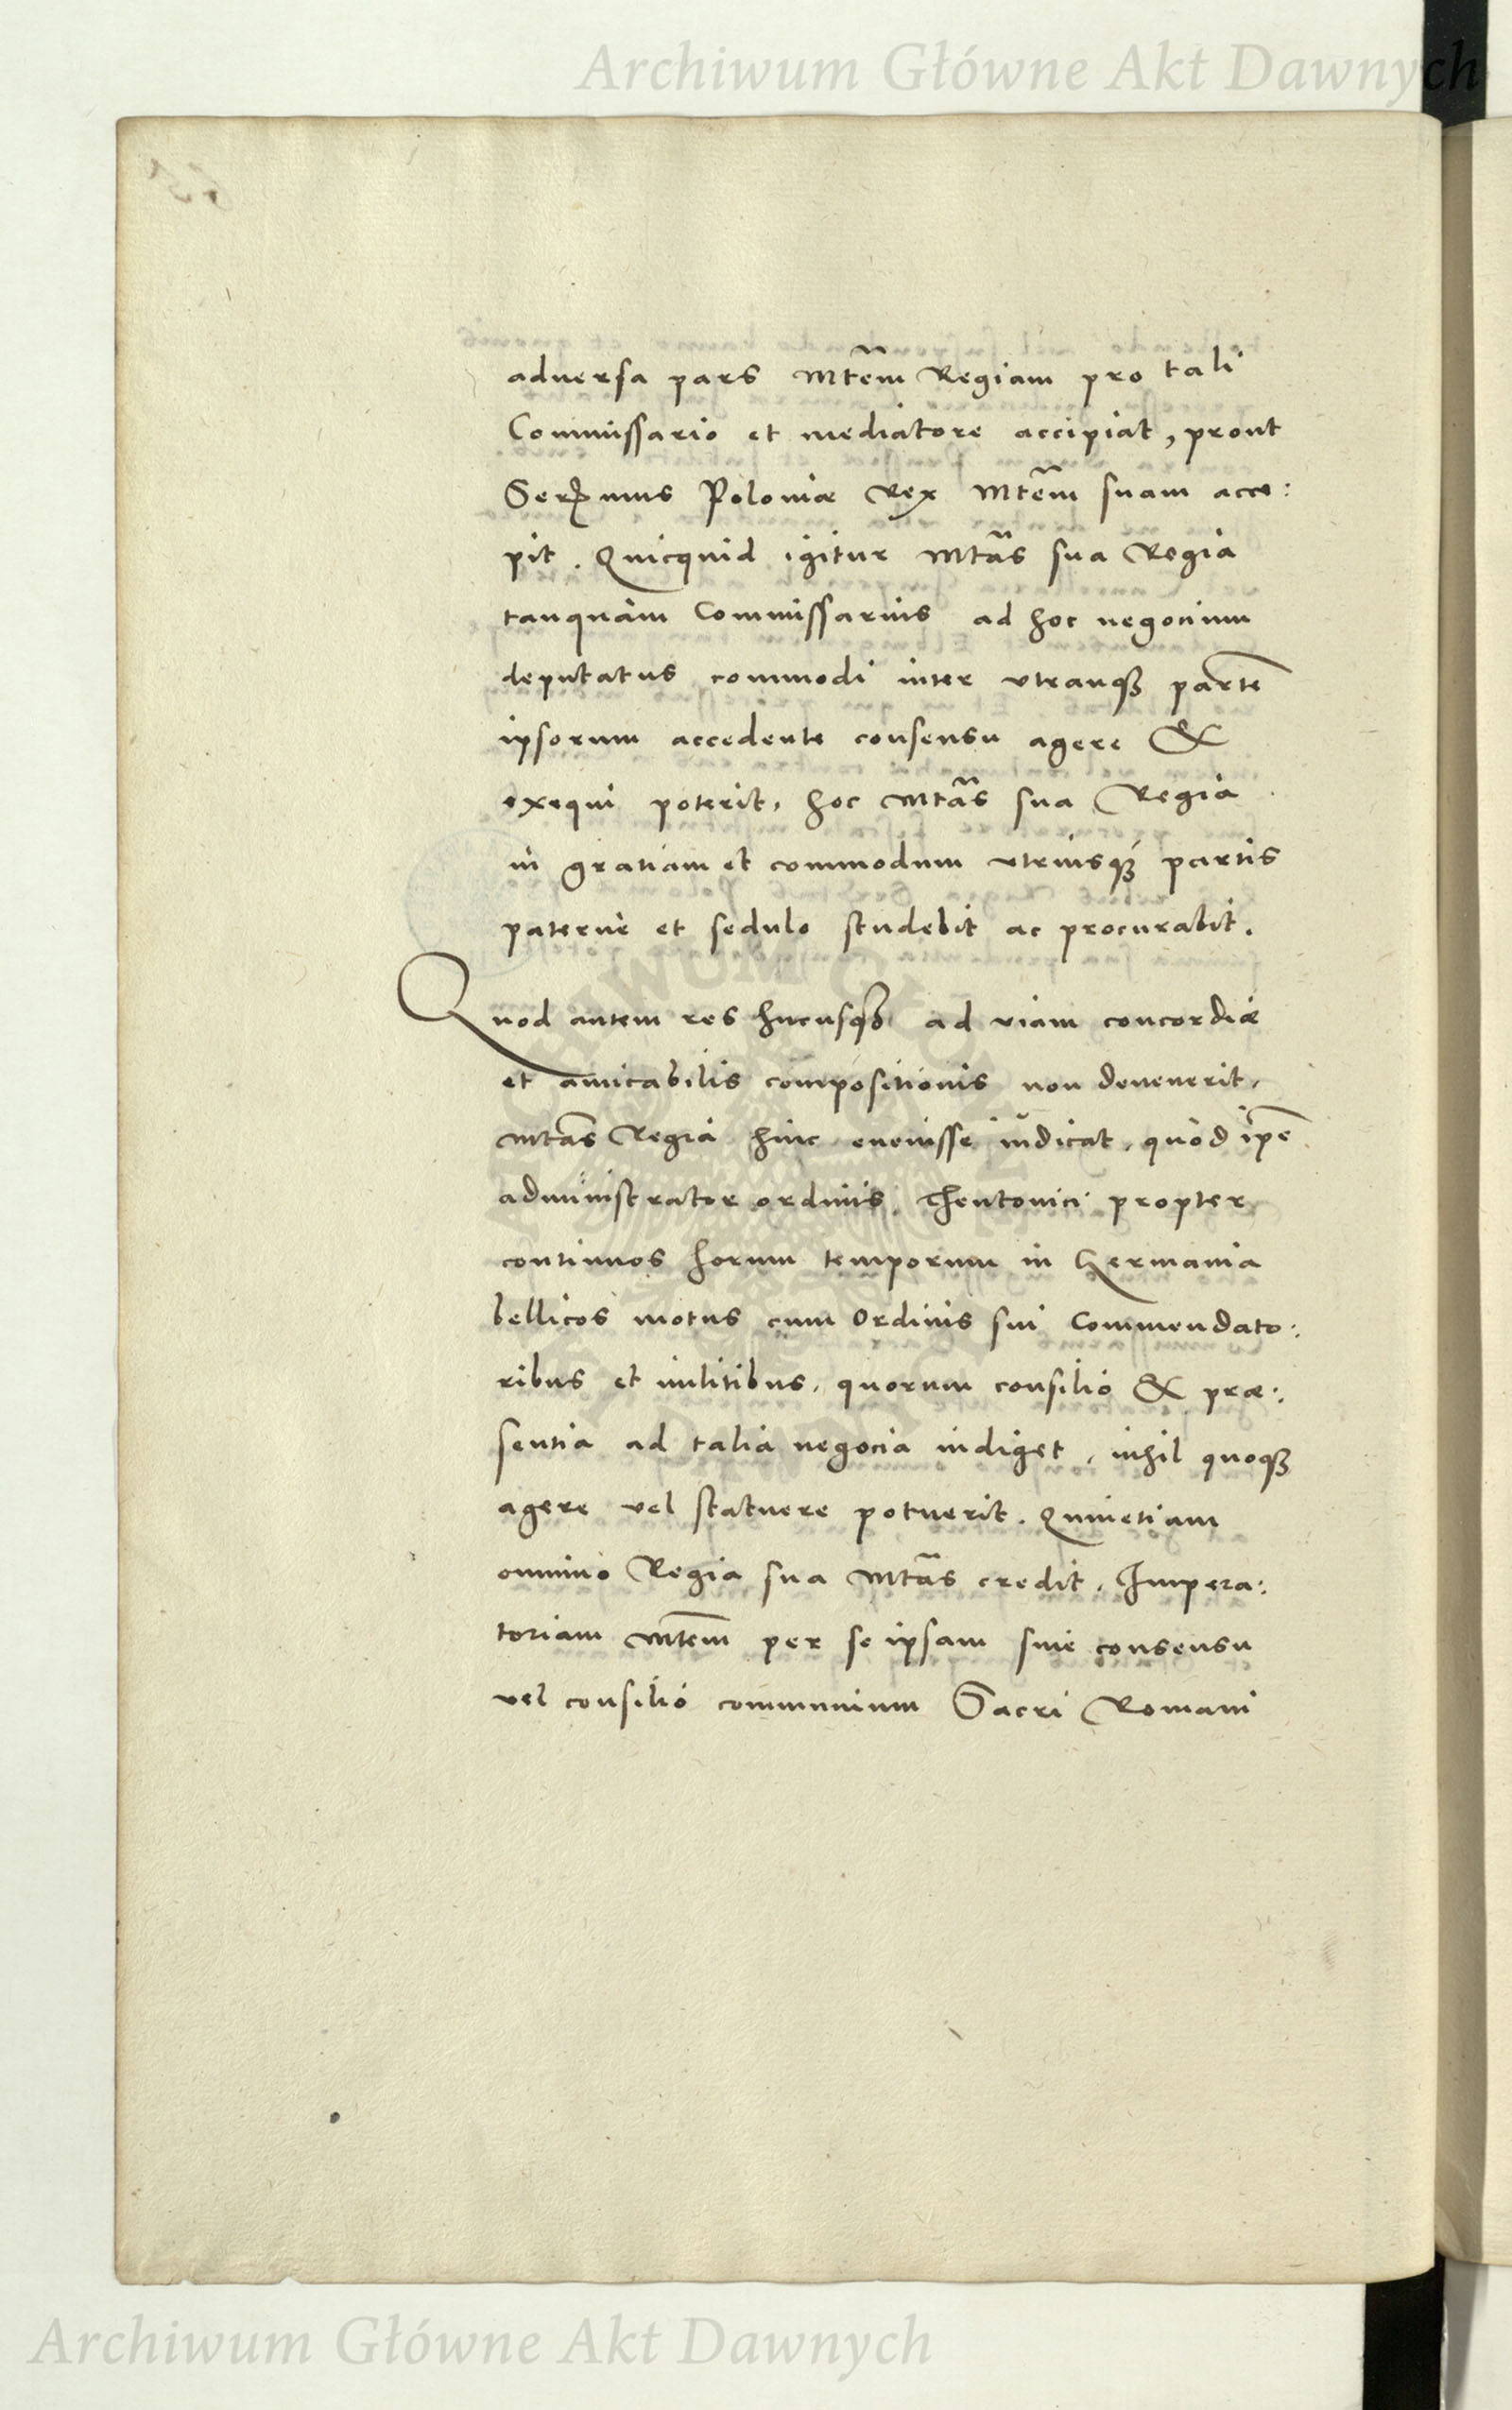 Archiwum Główne Akt Dawnych
adversa pars Mtem Regiam pro tali
Commissario et mediatore accipiat, prout
Ser.mus Poloniæ Rex Mtem suam acce:
pit. Quicquid igitur Mtas sua Regia
tanquam Commissarius ad hoc negocium
deputatus commodi inter utranq; parte
ipsorum accedente consensu agere &
exequi poterit, hoc Mtas sua Regia
in gratiam et commodum utriusq; partis
paternè et sedulo studebit ac procurabit.
Quod autem res hucusq; ad viam concordiæ
et amicabilis compositionis non devenerit,
Mtas Regia hinc evenisse iudicat, quòd ipse
administrator ordinis Theutonici propter
continuos horum temporum in Germania
bellicos motus cum Ordinis sui Commendato:
ribus et militibus, quorum consilio & præ:
sentia ad talia negocia indiget, nihil quoq;
agere vel statuere potuerit. Quinetiam
omnino Regia sua Mtas credit, Impera:
toriam Mtem per se ipsam sine consensu
vel consilio communium Sacri Romani
Archiwum Główne Akt Dawnych